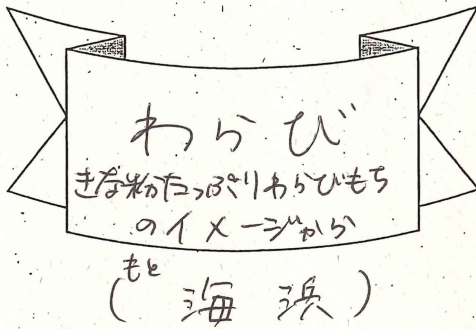 わらび
きな粉たっぷりわらびもち
のイメージから
もと
(海浜)